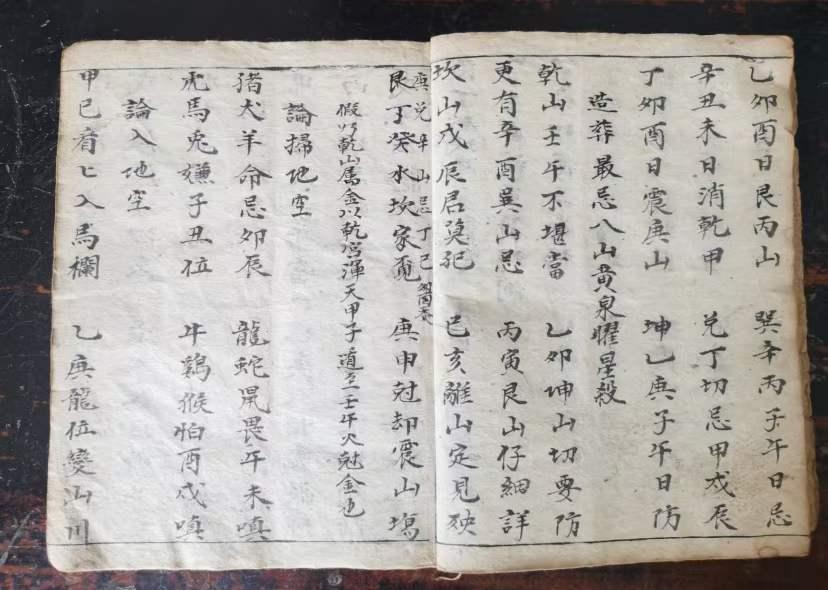 乙卯酉日艮丙山 巽辛丙子午日忌
辛丑未日消乾甲 兑丁切忌甲戍辰
丁卯酉日震庚山 坤乙庚子午日防
造葬最忌八山黄泉曜星殺
乾山壬午不堪當 乙卯坤山切要防
更有辛酉巽山忌 丙寅艮山仔細詳
坎山戍辰君莫犯 己亥離山定見殃
庚兑辛山忌丁巳
艮丁癸水坎家㝠 庚申尅却震山塲
假如乾山属金以乾宫渾天甲子遁立壬午火尅金也
論掃地空
猪犬羊命忌卯辰 龍蛇鼠畏午未嗔
虎馬兔嫌子丑位 牛鷄猴怕酉戍嗔
論入地空
甲巳看匕入馬欄 乙庚龍位變山川